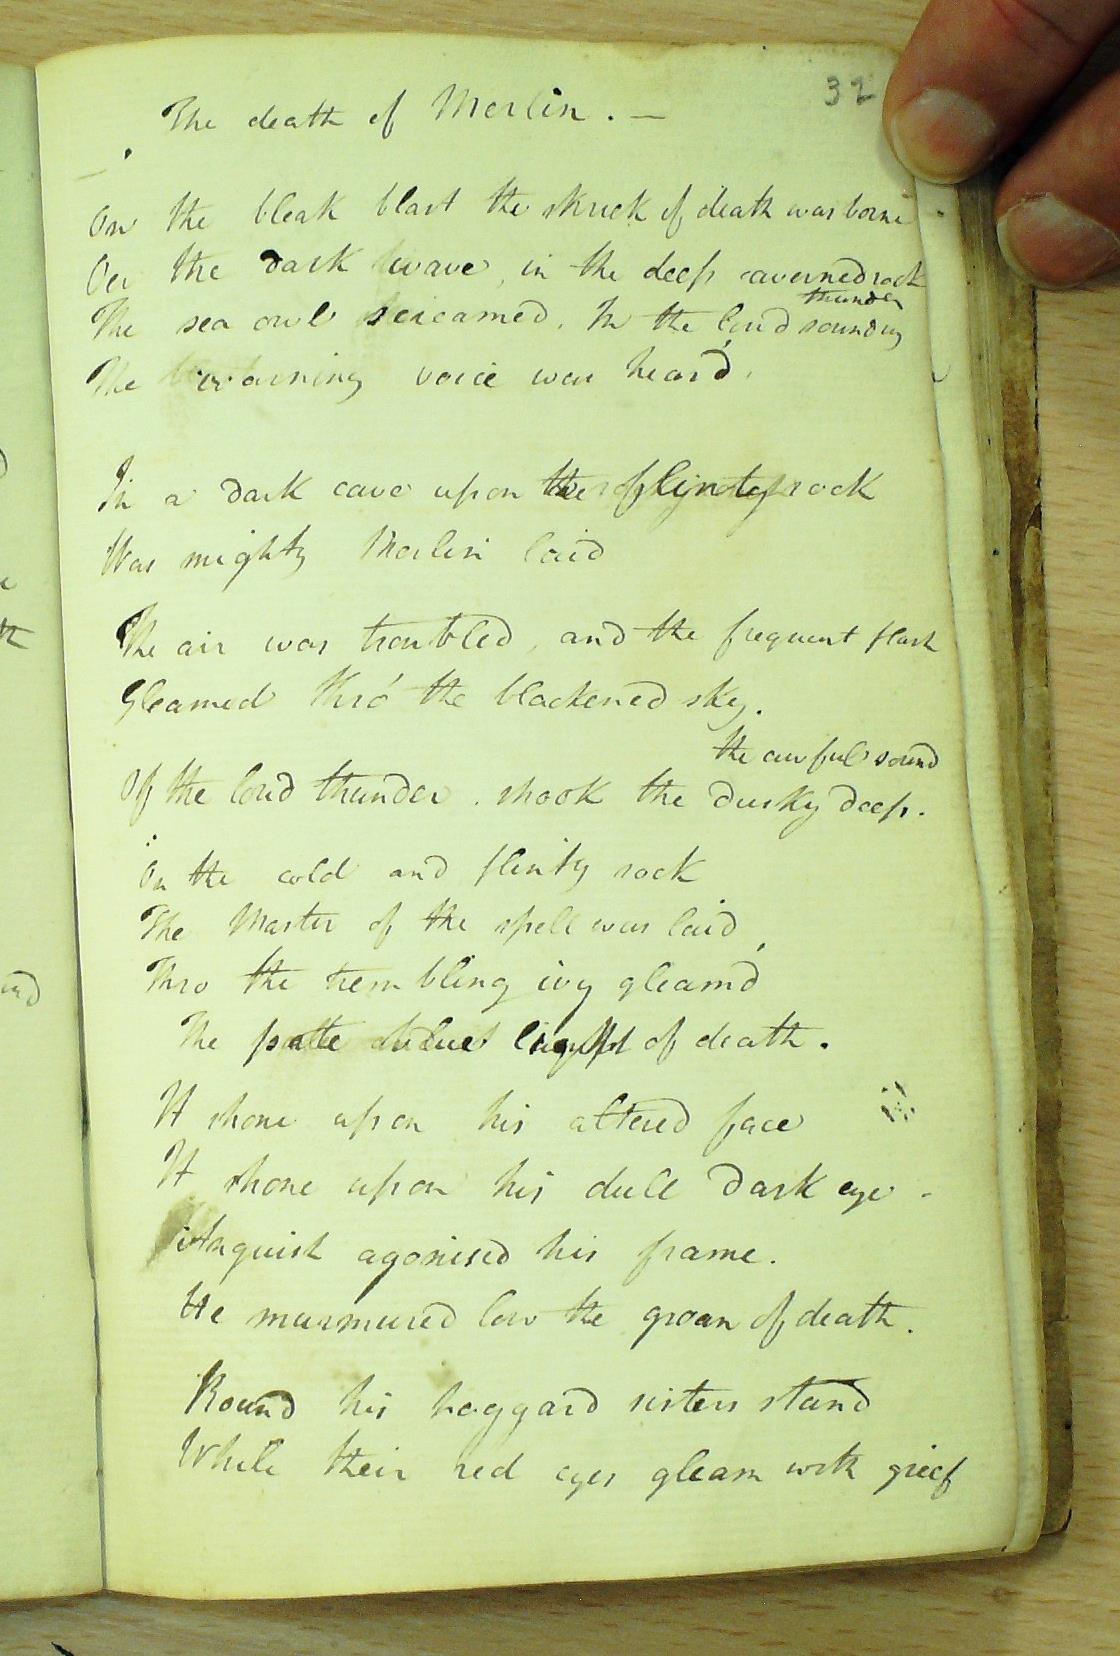 32
The death of Merlin. —
On the bleak blast the shriek of death was borne
Oer the dark wave, in the deep caverned rock
The sea owl screamed. In the loud sounding
thunder
The warning voice was heard.
In a dark cave upon the flinty rock
Was mighty Merlin laid
The air was troubled, and the frequent flash
Gleamed thro' the blackened sky.
the awful sound
Of the loud thunder. shook the dusky deep.
On the cold and flinty rock
The Master of the spell was laid,
Thro the trembling ivy gleam'd
The pale light of death.
It shone upon his altered face
It shone upon his dull dark eye -
Anguish agonised his frame.
He murmured low the groan of death.
Round his haggard sisters stand
While their red eyes gleam with grief